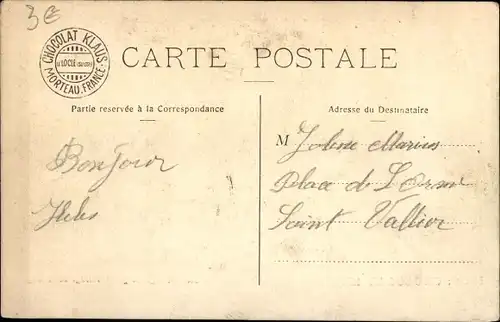 3€
CHOCOLAT KLAUS
LE LOCLE (SUISSE)
MORTEAU. FRANCE
CARTE POSTALE
Partie reservée à la Correspondance
Adresse du Destinataire
M Marius
Bonjour
Place de L'Orme
Saint Vallier